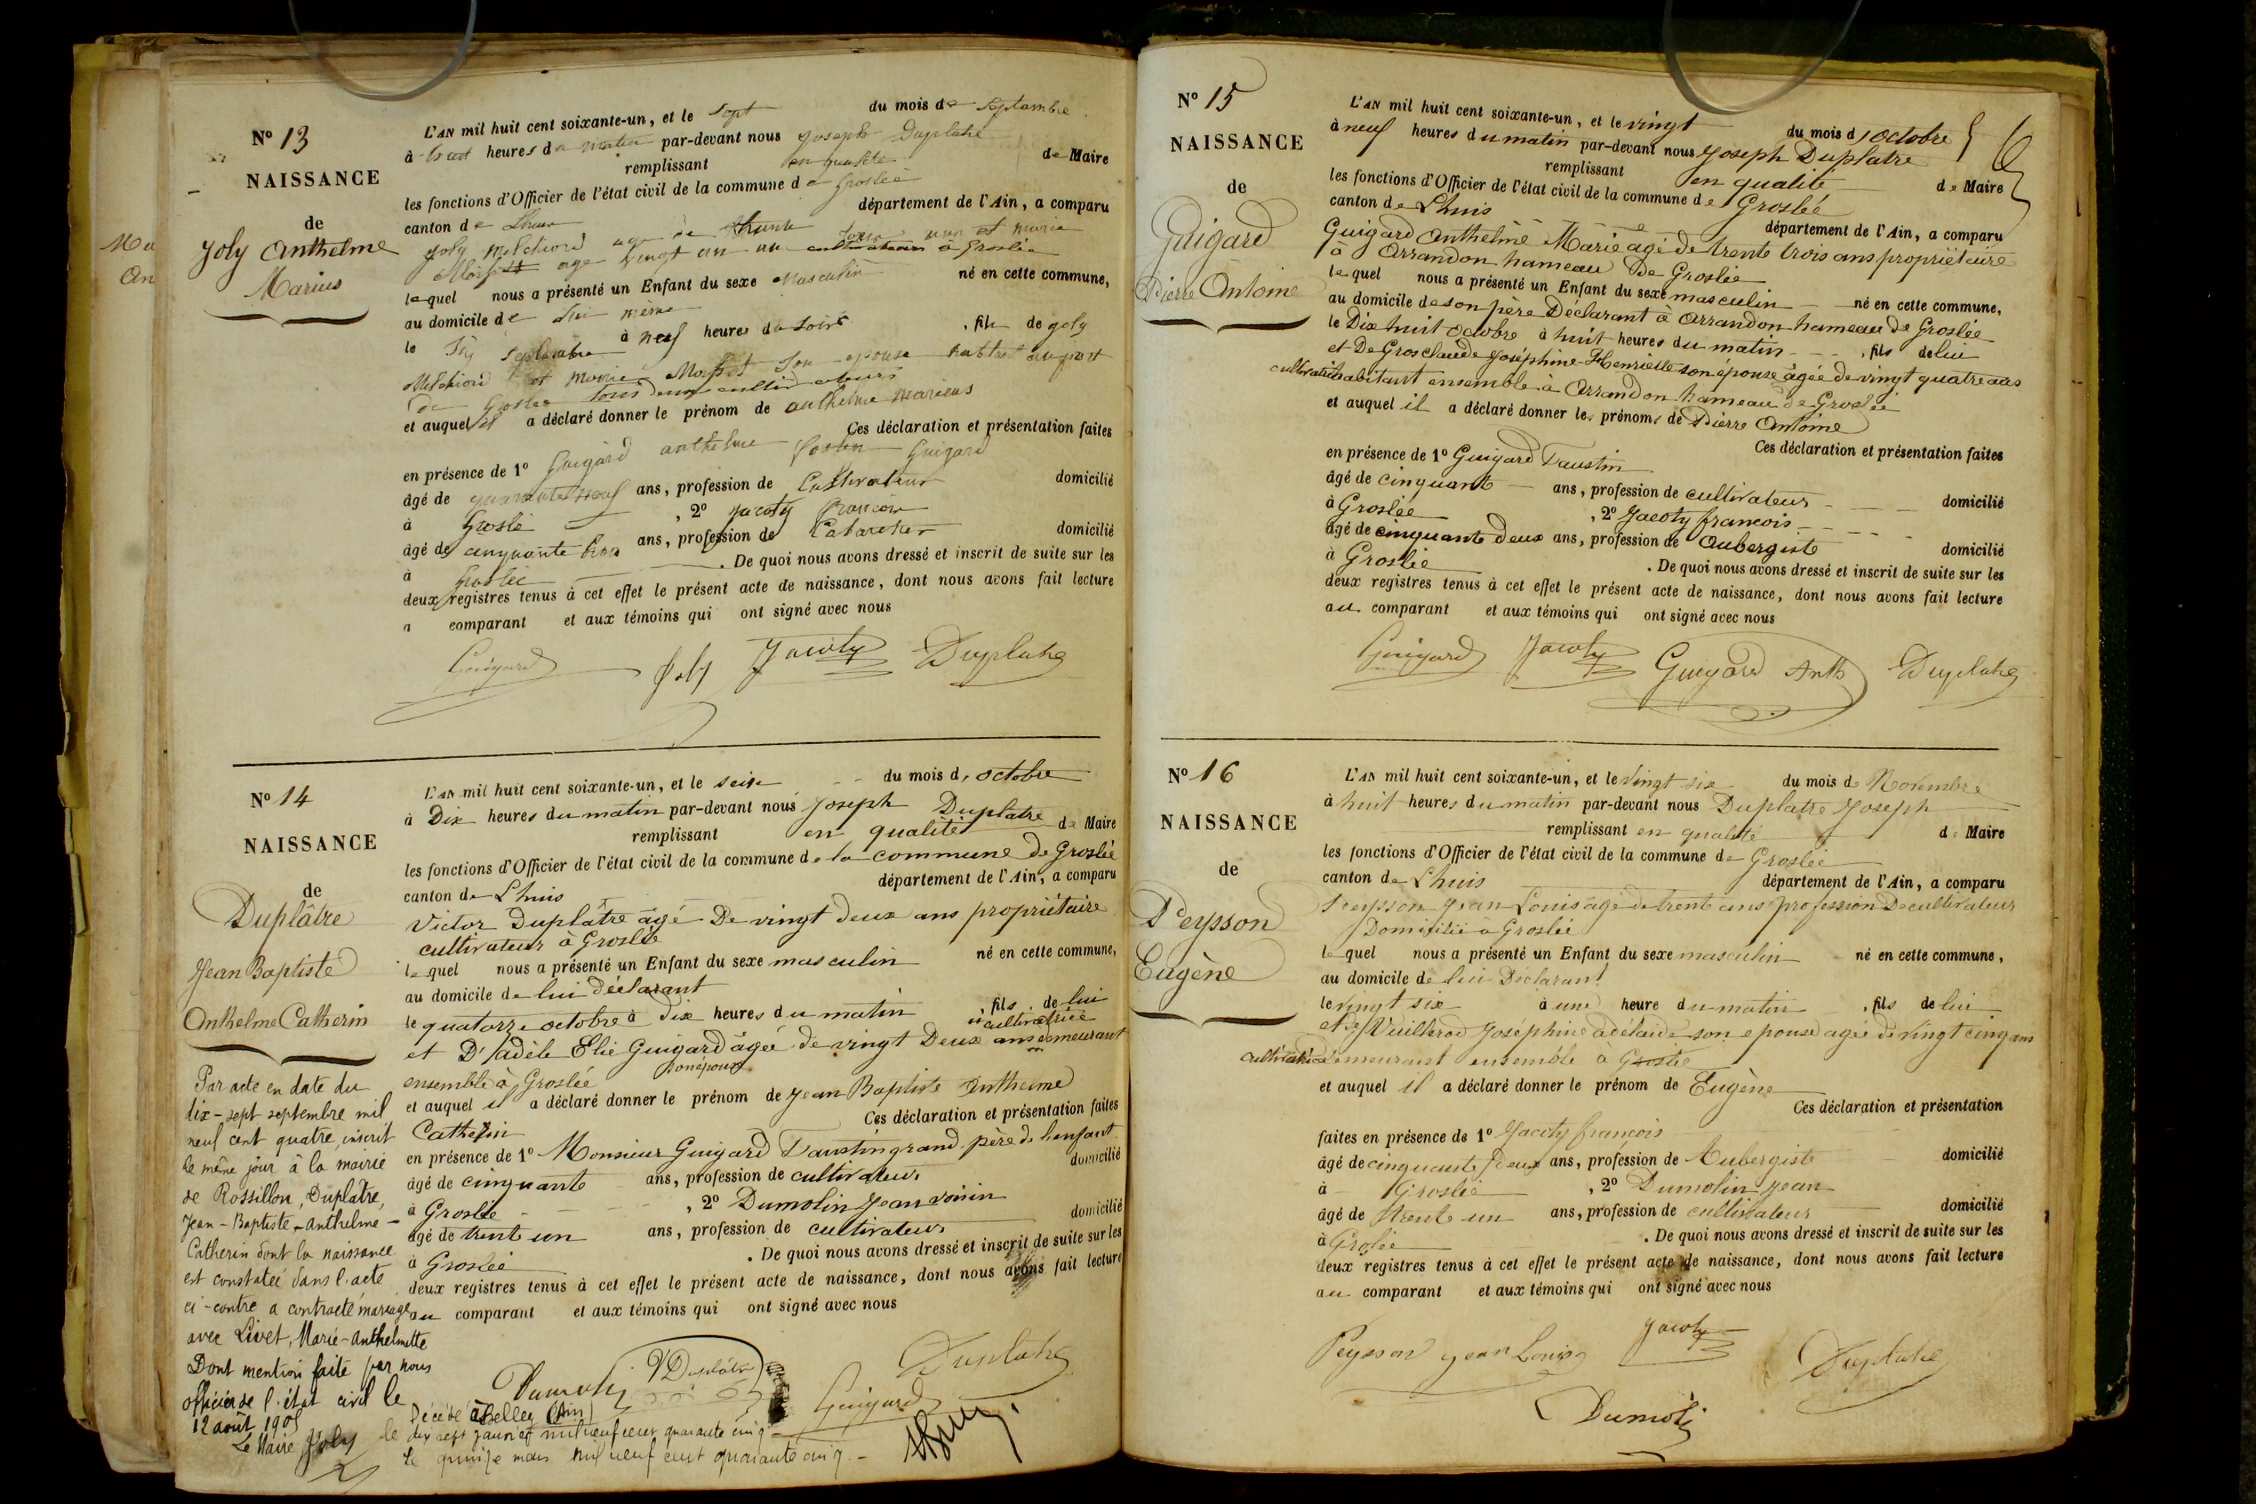 Nº 13
NAISSANCE
de
Joly Anthelme
Marius
L'AN mil huit cent soixante-un, et le sept du mois de septembre
à heures du matin par-devant nous Joseph Duplatre
remplissant en qualité de Maire
les fonctions d'Officier de l'état civil de la commune de Groslée
canton de Lhuis département de l'Ain, a comparu
Joly Melchiord agé de trente
agé vingt un an cultivateurs à Groslée
lequel nous a présenté un Enfant du sexe Masculin né en cette commune,
au domicile de lui même
le Six septembre à neuf heures du soir, fils de Joly
Melchiord et Marie son epouse habitant au port
de Groslee tous deux cultivateurs
et auquel il a déclaré donner le prénom de anthelme marieus
Ces déclaration et présentation faites
en présence de 1º Guigard anthelme Guigard
âgé de quarante neuf ans, profession de Cultivateur domicilié
à Groslé, 2º Jacoty François
âgé de cinquante ans, profession de Cabaretier domicilié
à Groslée. De quoi nous avons dressé et inscrit de suite sur les
deux registres tenus à cet effet le présent acte de naissance, dont nous avons fait lecture
a comparant et aux témoins qui ont signé avec nous
Guigard Joly Jacoty Duplatre
Nº 14
NAISSANCE
de
Duplâtre
Jean Baptiste
Anthelme Catherin
L'AN mil huit cent soixante-un, et le seize du mois d'octobre
à Dix heures du matin par-devant nous Joseph Duplatre
remplissant en qualité de Maire
les fonctions d'Officier de l'état civil de la commune de la commune de Groslée
canton de Lhuis département de l'Ain, a comparu
Victor Duplâtre âgé De vingt deux ans propriétaire
cultivateur à Groslée
lequel nous a présenté un Enfant du sexe masculin né en cette commune,
au domicile de lui déclarant
le quatorze octobre à dix heures du matin, fils de lui
cultivatrice
et D'adèle Elie Guigard âgée de vingt Deux ans demeurant
son épouse
ensemble à Groslée
et auquel il a déclaré donner le prénom de Jean Baptiste Anthelme
Catherin Ces déclaration et présentation faites
en présence de 1º Monsieur Guigard Faustin grand père de lenfant
âgé de cinquante ans, profession de cultivateur domicilié
à Groslée, 2º Dumolin Jean voisin
âgé de trente un ans, profession de cultivateur domicilié
à Groslée. De quoi nous avons dressé et inscrit de suite sur les
deux registres tenus à cet effet le présent acte de naissance, dont nous avons fait lecture
au comparant et aux témoins qui ont signé avec nous
Dumolin V Duplâtre Guigard Duplatre
Par acte en date du
dix-sept septembre mil
neuf cent quatre, inscrit
le même jour à la mairie
de Rossillon, Duplatre,
Jean-Baptiste-Anthelme-
Catherin dont la naissance
est constatée dans l'acte
ci-contre a contracté mariage
avec Livet, Marie-Anthelmette
Dont mention faite par nous
officier de l'état civil le
12 août 1905
Le Maire Joly
Décédé à Belley (Ain)
le dix sept janvier mil neuf cent quarante cinq -
le quinze mars mil neuf cent quarante cinq. -
Nº 15
NAISSANCE
de
Guigard
Pierre Antoine
L'AN mil huit cent soixante-un, et le vingt du mois d'octobre
à neuf heures du matin par-devant nous Joseph Duplatre
remplissant en qualité de Maire
les fonctions d'Officier de l'état civil de la commune de Groslée
canton de Lhuis département de l'Ain, a comparu
Guigard Anthelme Marie agé de trente trois ans propriétaire
à Arrandon hameau De Groslée
lequel nous a présenté un Enfant du sexe masculin né en cette commune,
au domicile de son père Déclarant à Arrandon hameau de Groslée
le Dix huit octobre à huit heures du matin, fils de lui
et De Grosclaude Joséphine Henriette son épouse âgée de vingt quatre ans
cultivatrice habitant ensemble à Arrandon hameau de Groslée
et auquel il a déclaré donner les prénoms de Pierre Antoine
Ces déclaration et présentation faites
en présence de 1º Guigard Faustin
âgé de cinquante ans, profession de cultivateur domicilié
à Groslée, 2º Jacoty francois
âgé de cinquante deux ans, profession de Aubergiste domicilié
à Groslée. De quoi nous avons dressé et inscrit de suite sur les
deux registres tenus à cet effet le présent acte de naissance, dont nous avons fait lecture
au comparant et aux témoins qui ont signé avec nous
Guigard Jacoty Guigard Anth Duplatre
Nº 16
NAISSANCE
de
Peysson
Eugène
L'AN mil huit cent soixante-un, et le vingt six du mois de Novembre
à huit heures du matin par-devant nous Duplatre Joseph
remplissant en qualité de Maire
les fonctions d'Officier de l'état civil de la commune de Groslée
canton de Lhuis département de l'Ain, a comparu
Peysson Jean Louis agé de trente ans profession De cultivateur
Domicilié à Groslée
lequel nous a présenté un Enfant du sexe masculin né en cette commune,
au domicile de lui Déclarant
le vingt six à une heure du matin, fils de lui
et de Vuillerod Josephine adélaide son epouse agée de vingt cinq ans
cultivatrice demeurant ensemble à Groslée
et auquel il a déclaré donner le prénom de Eugène
Ces déclaration et présentation
faites en présence de 1º Jacoty francois
âgé de cinquante deux ans, profession de Aubergiste domicilié
à Groslée, 2º Dumolin Jean
âgé de trente un ans, profession de cultivateur domicilié
à Grolée. De quoi nous avons dressé et inscrit de suite sur les
deux registres tenus à cet effet le présent acte de naissance, dont nous avons fait lecture
au comparant et aux témoins qui ont signé avec nous
Peysson Jean Louis Jacoty Duplatre
Dumoli